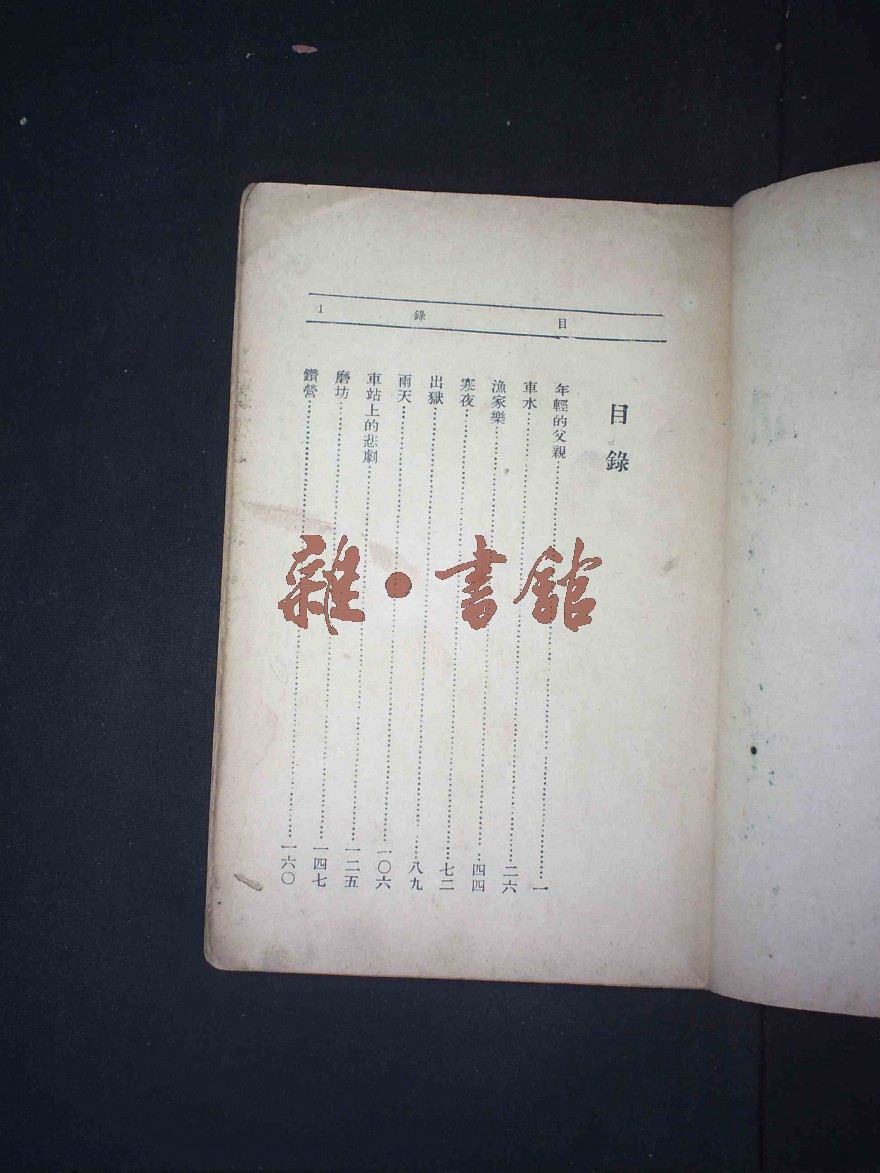 目 錄 1
目錄
年輕的父親……一
車水……二六
漁家樂……四四
寒夜……七二
出獄……八九
雨天……一〇六
車站上的悲劇……一二五
磨坊……一四七
鑽營……一六〇
雜·書館